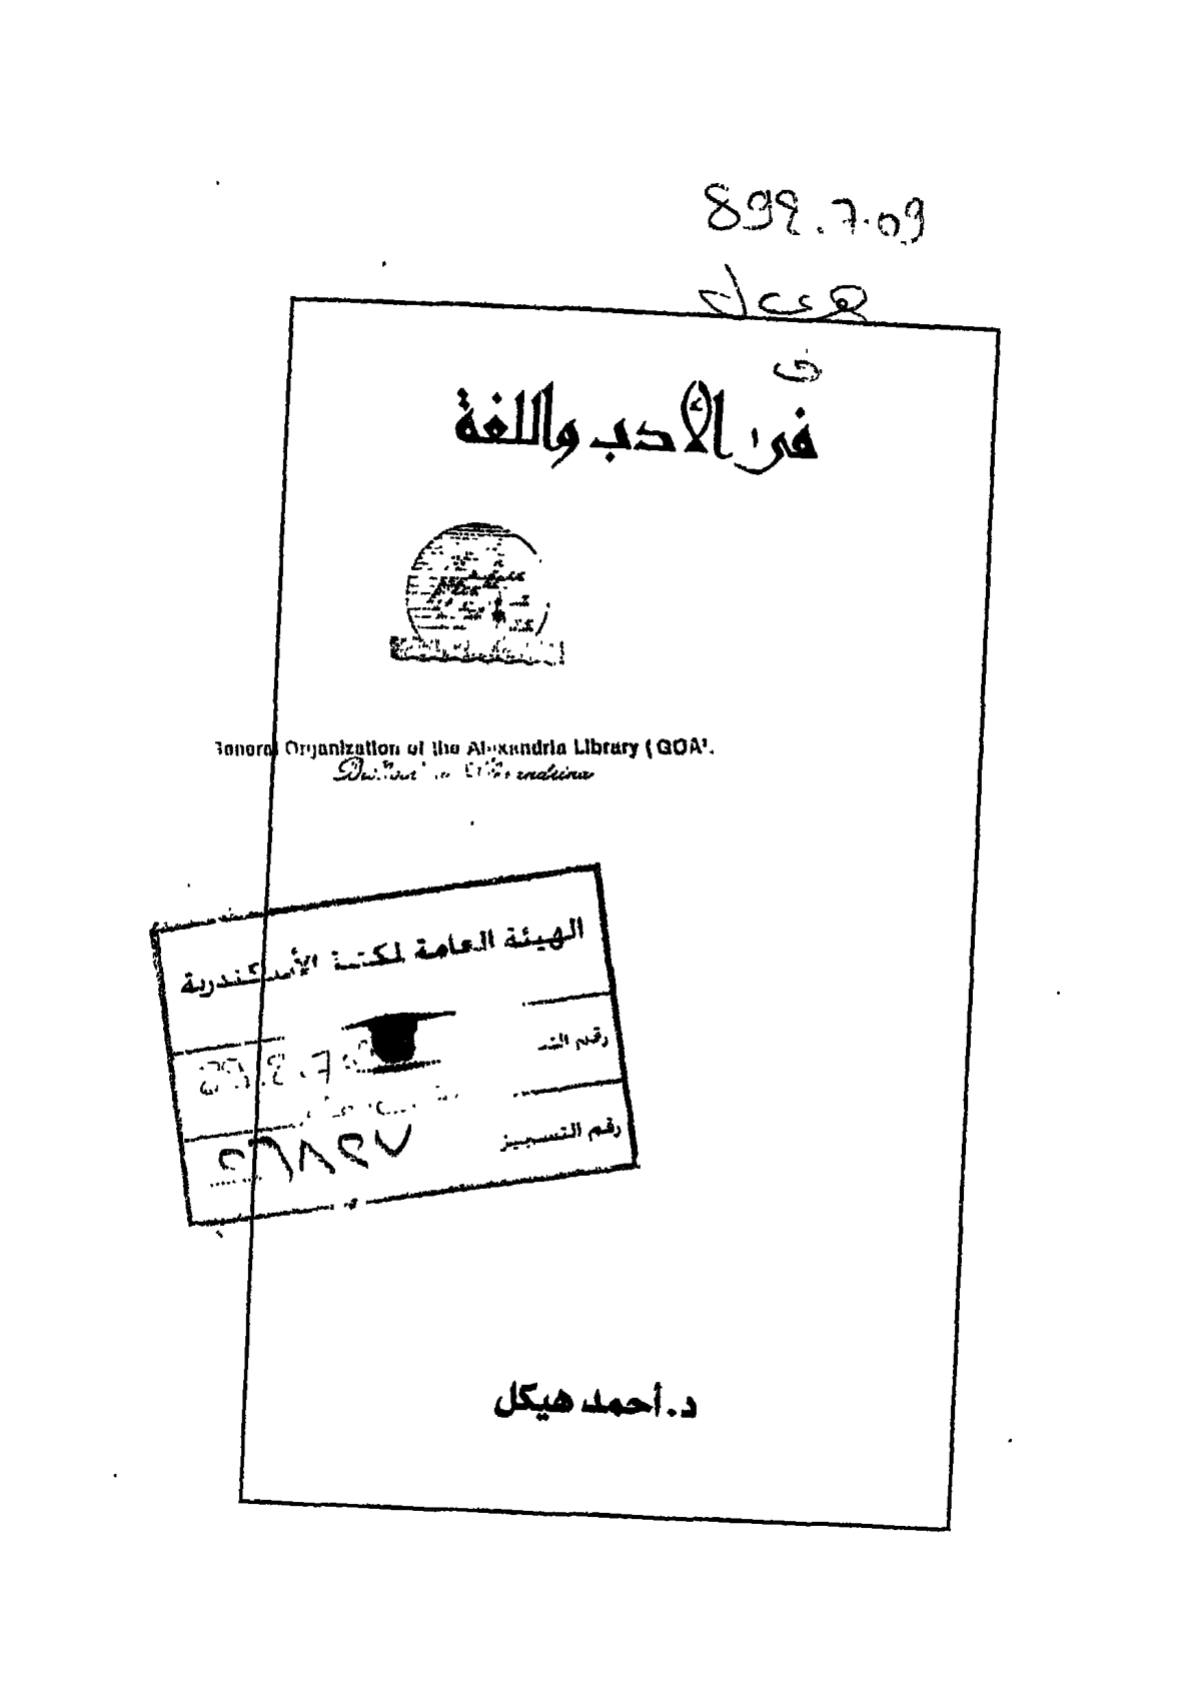 892.7.09
هى ل
ف
فى الأدب واللغة
General Organization of the Alexandria Library (GOAL
Bibliotheca Alexandrina
الهيئة العامة لمكتبة الأسكندرية
رقم
رقم التسجيل
د. أحمد هيكل